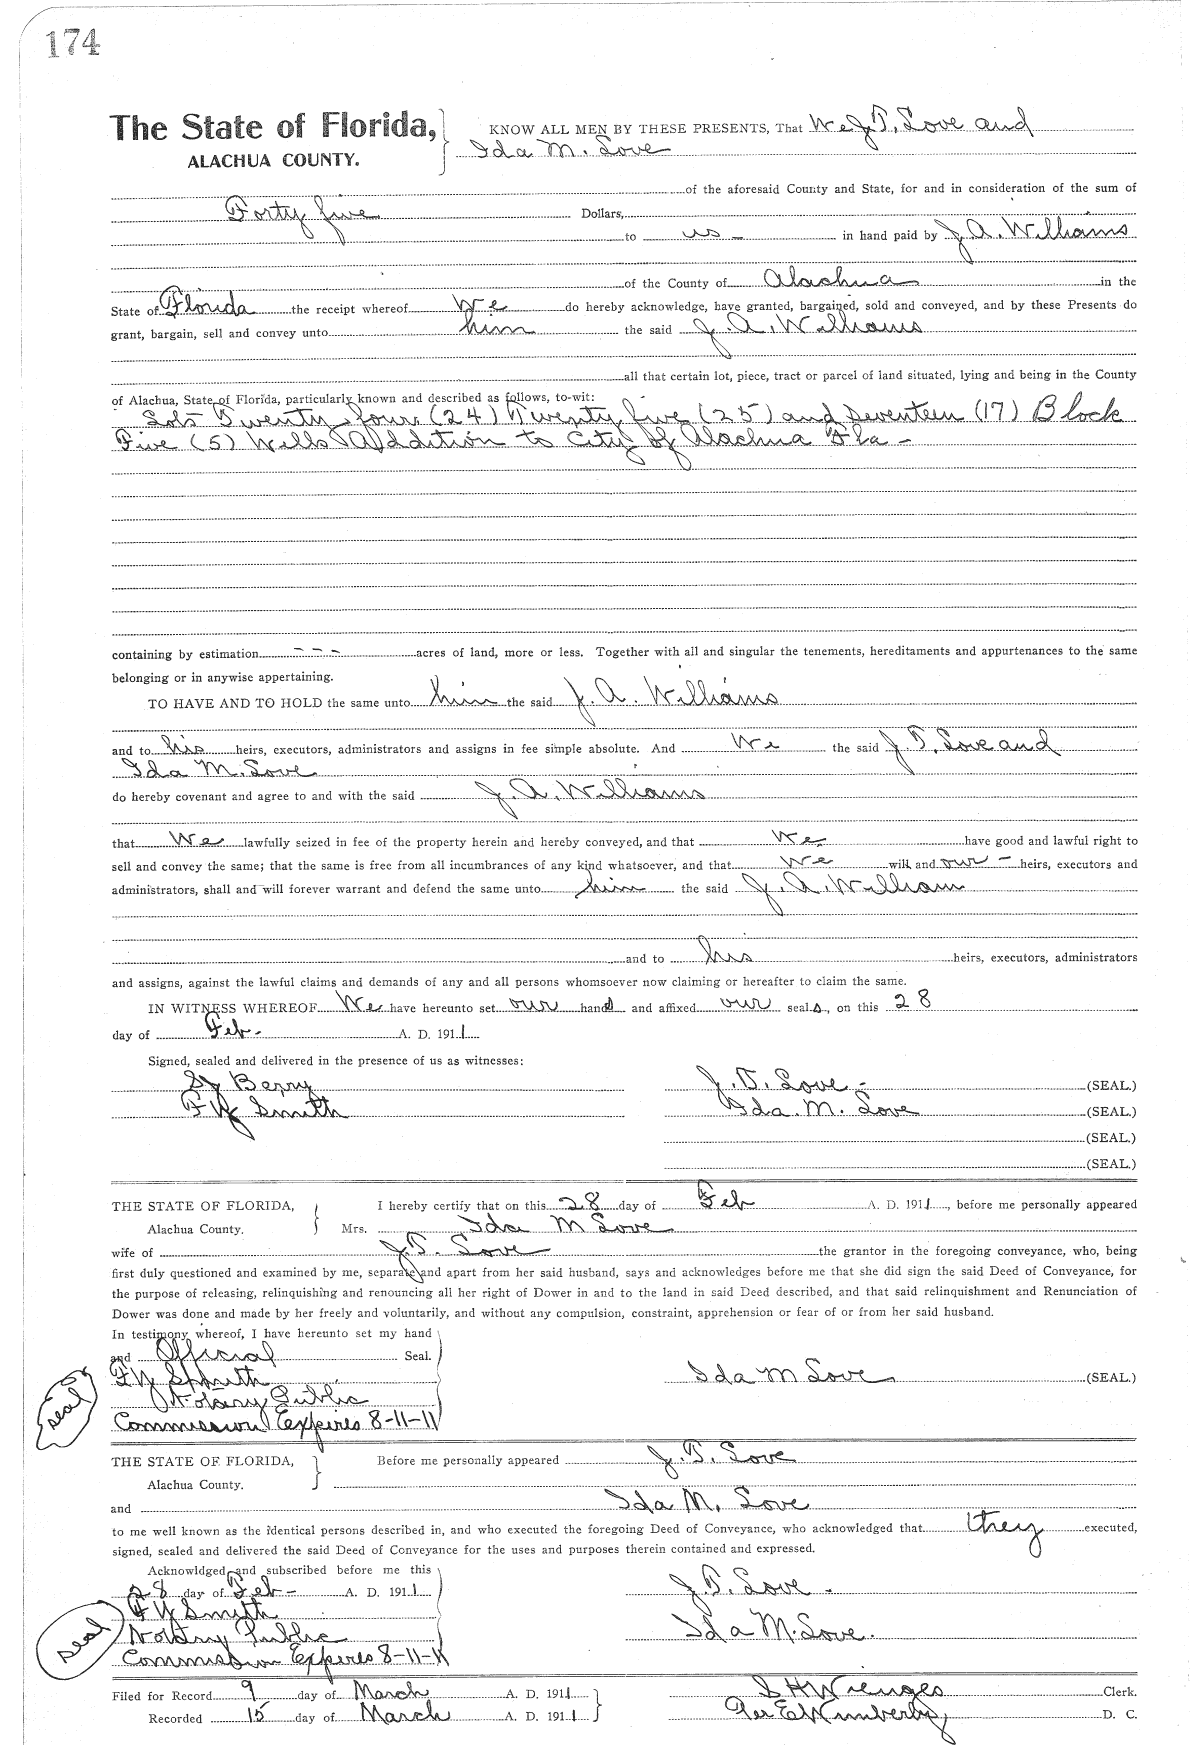 174
The State of Florida, KNOW ALL MEN BY THESE PRESENTS, That We J. T. Love and
ALACHUA COUNTY. Ida M. Love
of the aforesaid County and State, for and in consideration of the sum of
Forty five Dollars,
to us - in hand paid by J. A. Williams
of the County of Alachua in the
State of Florida the receipt whereof We do hereby acknowledge, have granted, bargained, sold and conveyed, and by these Presents do
grant, bargain, sell and convey unto him the said J. A. Williams
all that certain lot, piece, tract or parcel of land situated, lying and being in the County
of Alachua, State of Florida, particularly known and described as follows, to-wit:
Lots Twenty four (24) Twenty five (25) and Seventeen (17) Block
Five (5) Wells Addition to City of Alachua Fla -
containing by estimation - - - acres of land, more or less. Together with all and singular the tenements, hereditaments and appurtenances to the same
belonging or in anywise appertaining.
TO HAVE AND TO HOLD the same unto him the said J. A. Williams
and to his heirs, executors, administrators and assigns in fee simple absolute. And We the said J. T. Love and
Ida M. Love
do hereby covenant and agree to and with the said J. A. Williams
that We lawfully seized in fee of the property herein and hereby conveyed, and that We have good and lawful right to
sell and convey the same; that the same is free from all incumbrances of any kind whatsoever, and that We will and our - heirs, executors and
administrators, shall and will forever warrant and defend the same unto him the said J. A. William
and to his heirs, executors, administrators
and assigns, against the lawful claims and demands of any and all persons whomsoever now claiming or hereafter to claim the same.
IN WITNESS WHEREOF We have hereunto set our hands and affixed our seals, on this 28
day of Feb. A. D. 1911
Signed, sealed and delivered in the presence of us as witnesses:
Berry J. T. Love - (SEAL.)
Smith Ida. M. Love (SEAL.)
(SEAL.)
(SEAL.)
THE STATE OF FLORIDA, I hereby certify that on this 28 day of Feb A. D. 1911, before me personally appeared
Alachua County. Mrs. Ida M Love
wife of J. T. Love the grantor in the foregoing conveyance, who, being
first duly questioned and examined by me, separate and apart from her said husband, says and acknowledges before me that she did sign the said Deed of Conveyance, for
the purpose of releasing, relinquishing and renouncing all her right of Dower in and to the land in said Deed described, and that said relinquishment and Renunciation of
Dower was done and made by her freely and voluntarily, and without any compulsion, constraint, apprehension or fear of or from her said husband.
In testimony whereof, I have hereunto set my hand
and Official Seal.
Smith Ida M Love (SEAL.)
seal Notary Public
Commission Expires 8-11-11
THE STATE OF FLORIDA, Before me personally appeared J. T. Love
Alachua County.
and Ida M. Love
to me well known as the identical persons described in, and who executed the foregoing Deed of Conveyance, who acknowledged that they executed,
signed, sealed and delivered the said Deed of Conveyance for the uses and purposes therein contained and expressed.
Acknowldged and subscribed before me this
28 day of Feb - A. D. 1911 J. T. Love -
Smith
seal Notary Public Ida M. Love.
Commission Expires 8-11-11
Filed for Record 9 day of March A. D. 1911 S H Wienges Clerk.
Recorded 15 day of March A. D. 1911 Per E Wimberly D. C.